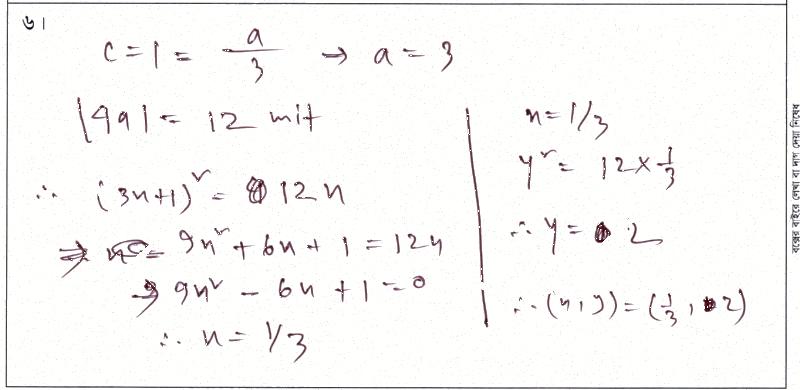 ৬।
c = 1 = a/3 → a = 3
|4a| = 12 unit
∴ (3x+1)² = 12x
⇒ 9x² + 6x + 1 = 12x
⇒ 9x² - 6x + 1 = 0
∴ x = 1/3
x = 1/3
y² = 12 × 1/3
∴ y = 2
∴ (x, y) = (1/3, 2)
বক্সের বাইরে লেখা বা দাগ দেয়া নিষেধ